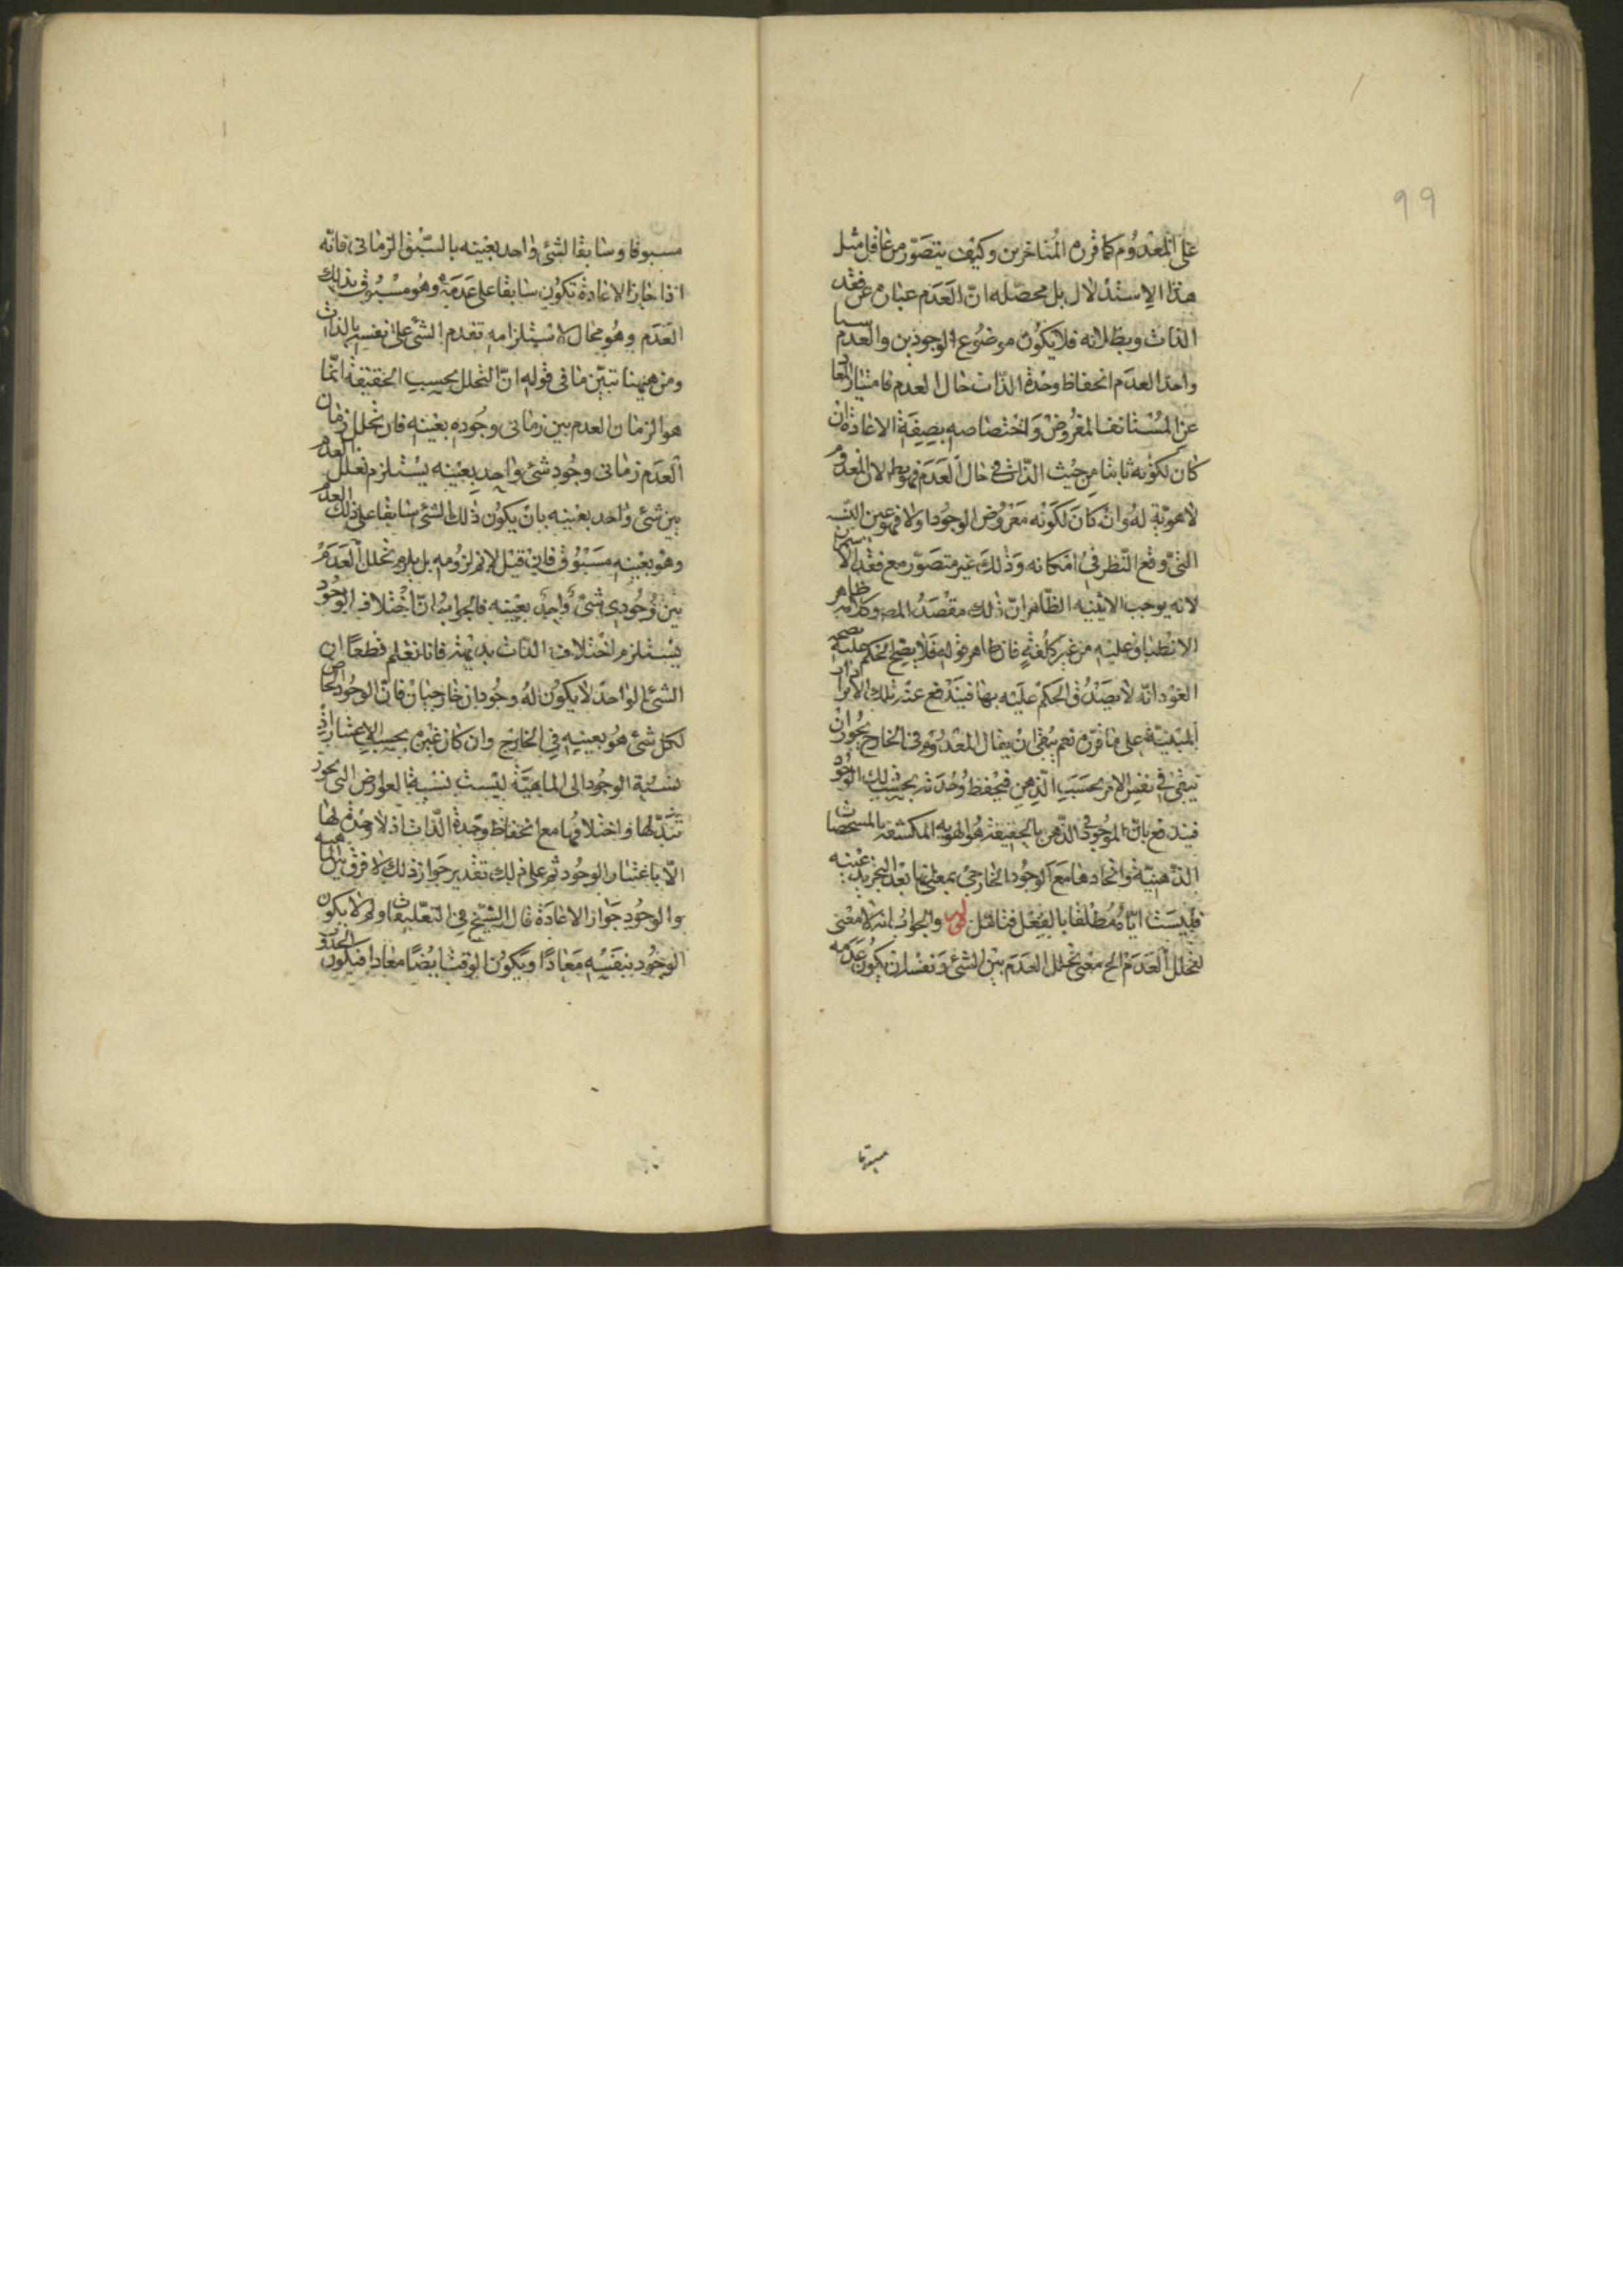 99
على المعدوم كما قرره المتاخرين وكيف يتصور من عاقل مثل
هذا الاستدلال بل محصّله انّ العَدَم عبارة عن فقد
الذات وبطلانه فلا يكون موضوع الوجودين والعدم
واحدا لعدم انحفاظ وحدة الذات حال العدم فامتياز المعاد
عن المستانف المفروض واختصاصه بصفة الاعادة ان
كان لكونه ثابتا من حيث الذات في حال العَدَم فهو بط لان المعدوم
لا هويّة له وان كان لكونه معروض الوجود اولا فهو عين النسبة
التى وقع النّظر في امكانه وذلك غير متصوّر مع فقد الا
لانه يوجب الاثنينه الظاهر انّ ذلك مقصد المص وكلامه ظاهر
الانطباق عليه من غير كلفة فان ظاهر قوله فلا يصح الحكم عليه
العود انّه لا يصدق الحكم عليه بها فيندفع عنه تلك الايرا
المبنيّة على ما قرره نعم بقى ان يقال المعدوم في الخارج يجوز ان
يبقى في نفس الامر بحسب الذهن فيحفظ وحدته بحسب ذلك الوجود
فيندفع بانّ الموجود في الذهن بالحقيقة هو الهويه المكتنفه بالمشخصات
الذّهنيّة واتحادها مع الوجود الخارجي بمعنى انها بعد التجريد عينه
فليست ايّاه مطلقا بالفعل فتامّل قوله والجواب انه لا معنى
لتخلل العَدَم الخ معنى تخلل العدم بين الشئ ونفسه ان يكون عدمه
مسبوقا
مسبوقا وسابقا لشئ واحد بعينه بالسّبق الزمانى فانّه
اذا جاز الاعادة تكون سابقا على عدمه وهو مسبوق بذلك
العَدَم وهو محال لاستلزامه تقدم الشئ على نفسه بالذات
ومن هيهنا تبيّن ما في قوله انّ التخلل بحسب الحقيقة انّما
هو الزمان لعدم بين زمانى وجوده بعينه فان تخلل زمان
العدم زمانى وجود شئ واحد بعينه يستلزم تخلل العدم
بين شئ واحد بعينه بان يكون ذلك الشئ سابقا على ذلك العدم
وهو بعينه مسبوق فان قيل لا نم لزومه بل يلزم تخلل العَدَم
بين وجودى شئ واحد بعينه فالجواب انّ اختلاف الوجود
يستلزم اختلاف الذات بديهة فانا نعلم قطعا ان
الشئ الواحد لا يكون له وجودان خارجيان فانّ الوجود الخاص
لكل شئ هو بعينه في الخارج وان كان غيره بحسب الاعتبار اذ
نسبة الوجود الى الماهيّة ليست نسبة العوارض التى يجوز
تبدّلها واختلافها مع انحفاظ وحدة الذات اذ لا وحدة لها
الّا باعتبار الوجود ثم على ذلك تقدير جواز ذلك لا فرق بين الماهيه
والوجود جواز الاعادة قال الشيخ في التعليقات ولم لا يكون
الوجود بنفسه معادا ويكون الوقت ايضا معادا فيكون الحدوث